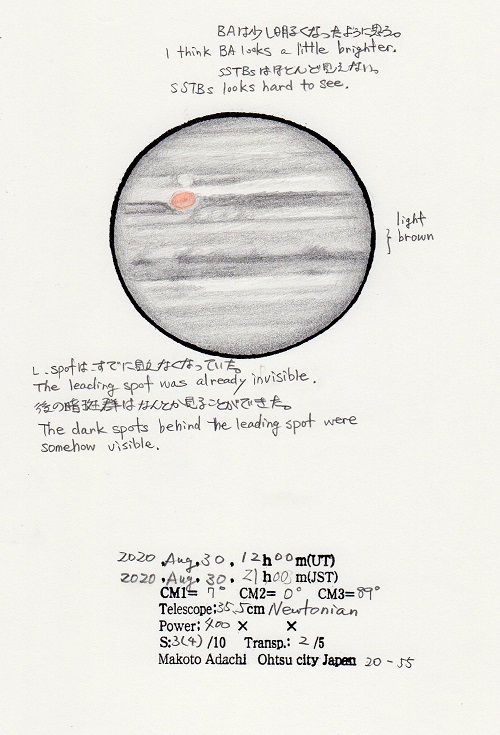 BAは少し明るくなったように思う。
I think BA looks a little brighter.
SSTBsはほとんど見えない。
SSTBs looks hard to see.
light
brown
L.spotは、すでに見えなくなっていた。
The leading spot was already invisible.
後の暗斑群はなんとか見ることができた。
The dark spots behind the leading spot were
somehow visible.
2020.Aug.30. 12h00m(UT)
2020.Aug.30. 21h00m(JST)
CM1= 7° CM2= 0° CM3=89°
Telescope:35.5cm Newtonian
Power: 400 × ×
S:3(4)/10 Transp.: 2/5
Makoto Adachi Ohtsu city Japan 20-55